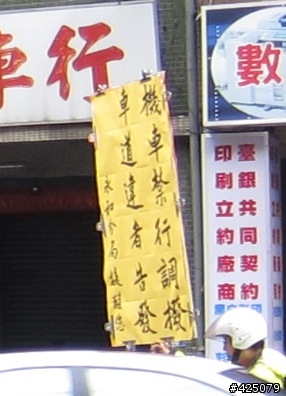 車行
數
機車禁行調撥
車道違者告發
永和分局提醒您
臺銀共同契約
印刷立約廠商
#425079